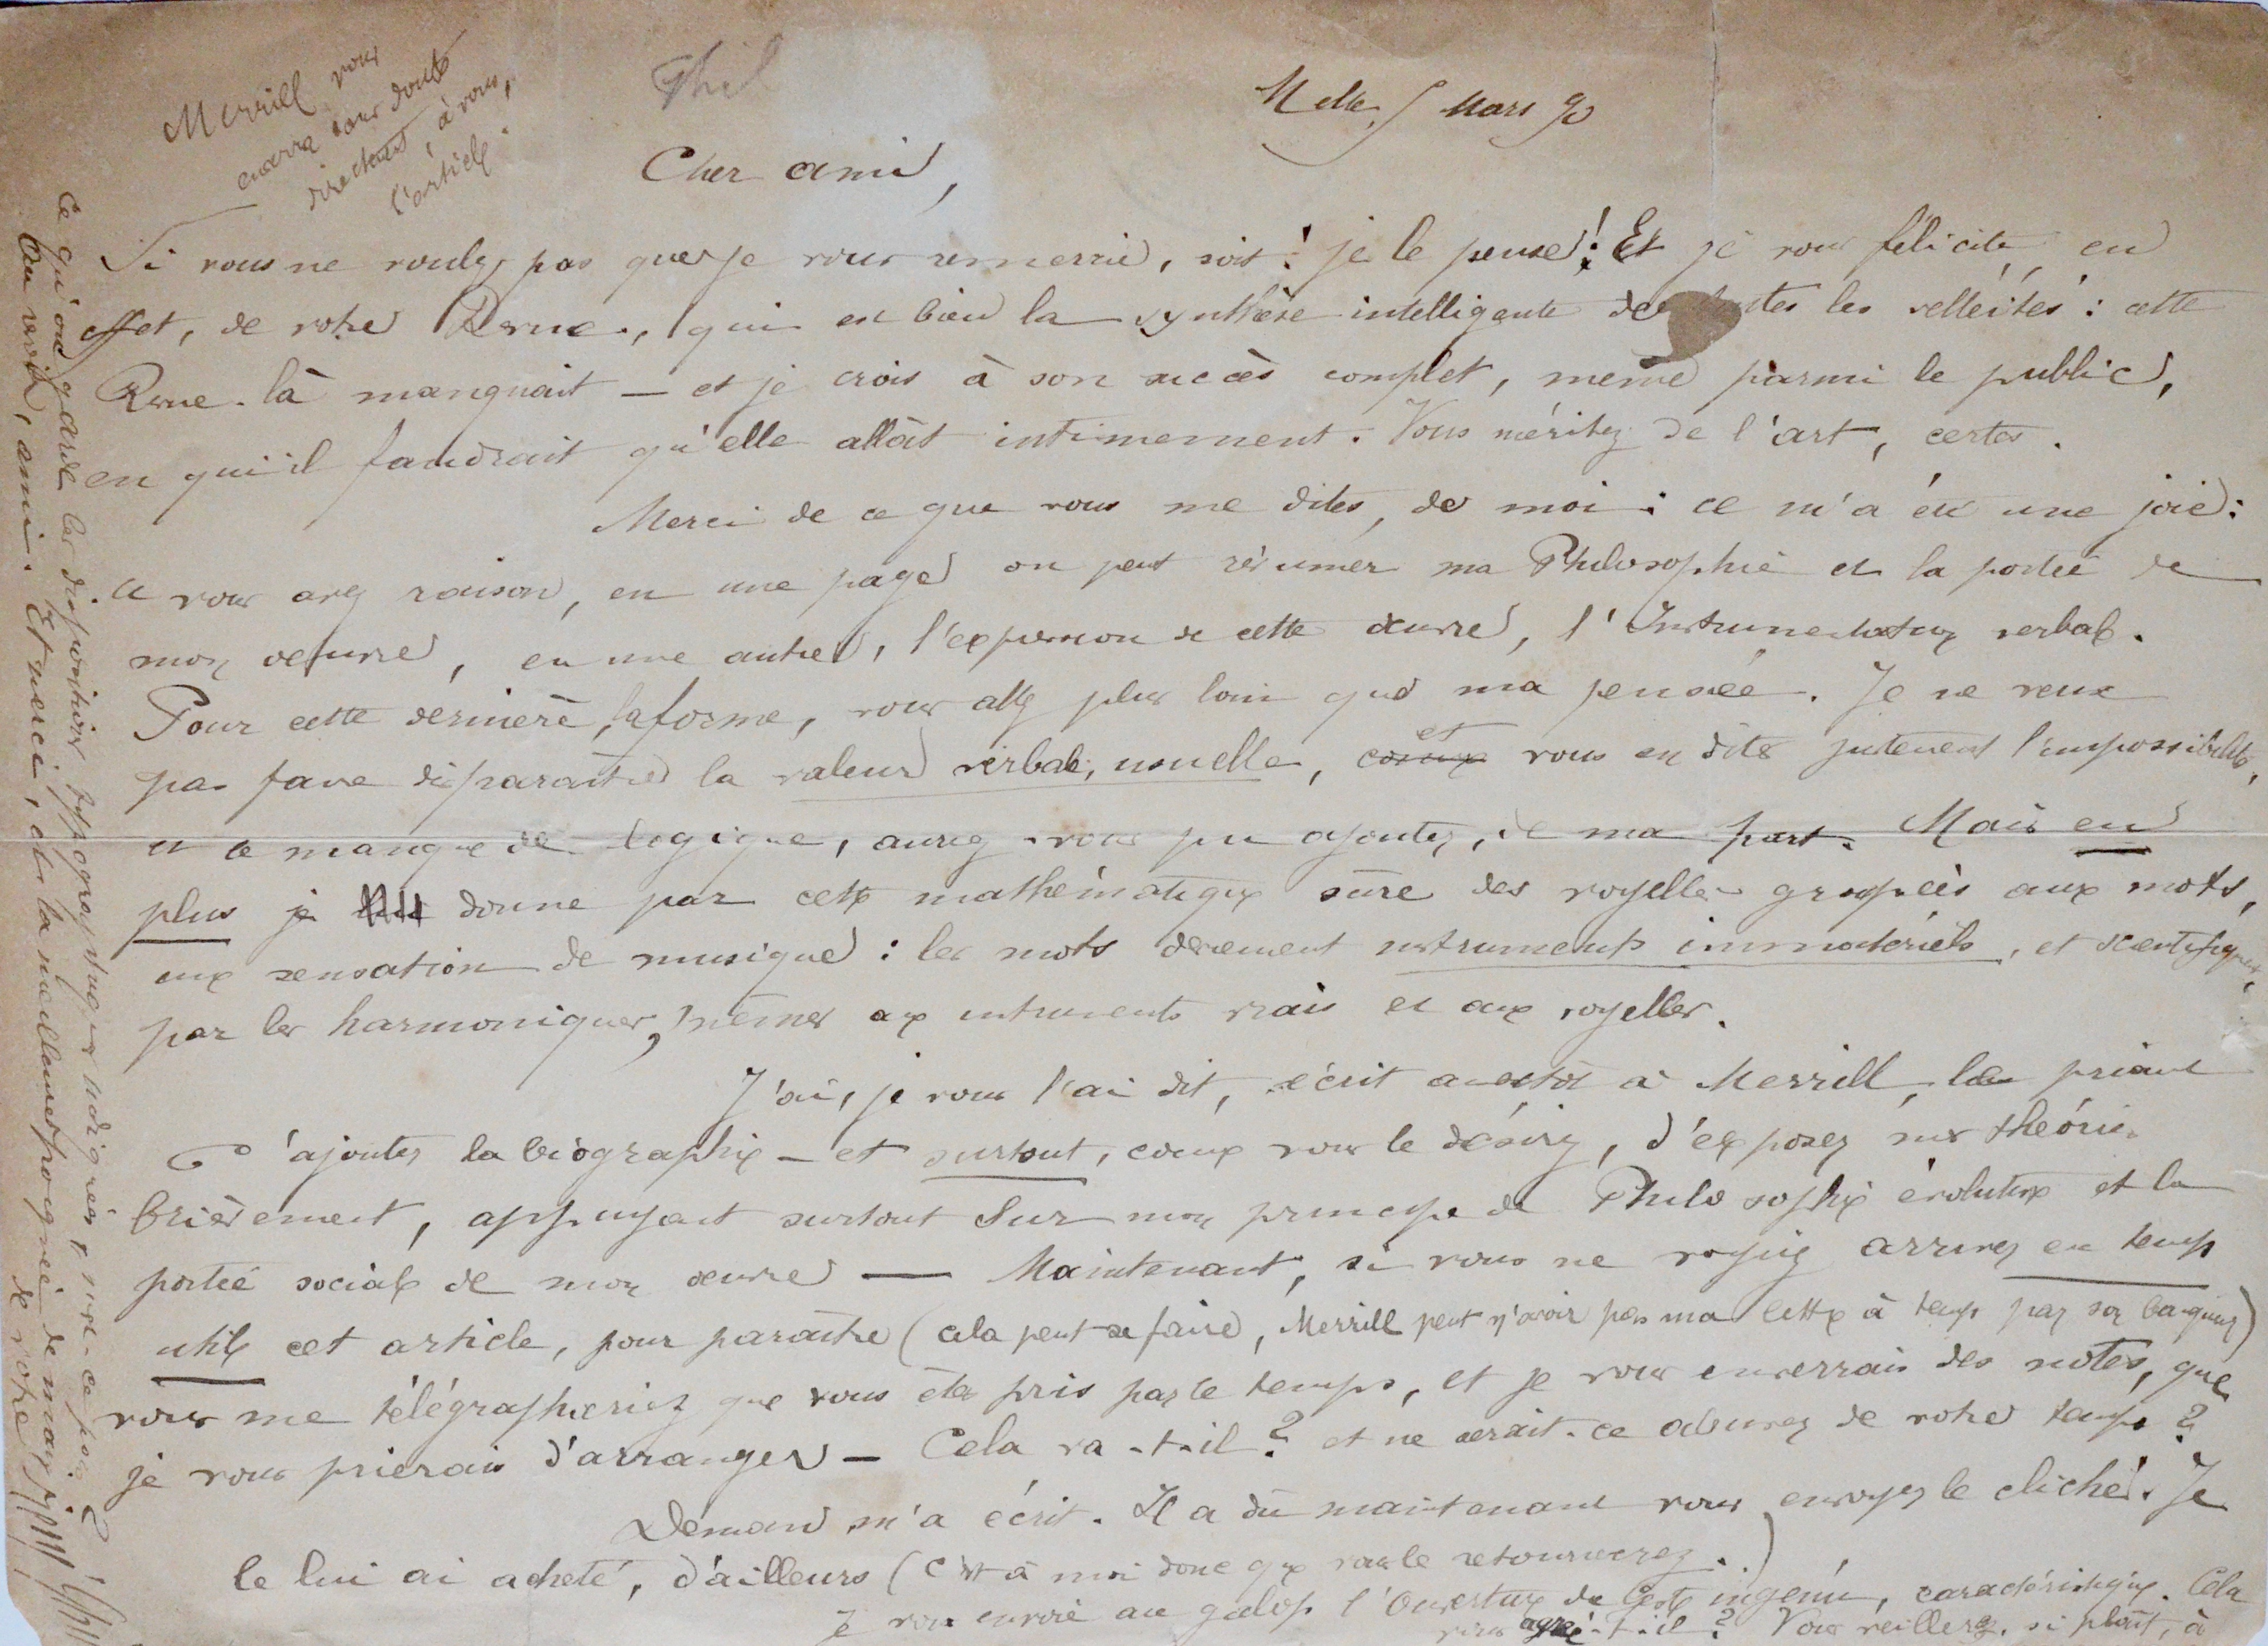 Phil
Melle, 5 Mars 90
Merrill vous
enverra sans doute
directement, à vous,
l'article.
Cher ami,
Si vous ne voulez pas que je vous remercie, soit ! je le pense ! Et je vous félicite, en
effet, de votre Revue, qui est bien la synthèse intelligente de toutes les velléités : cette
Revue-là manquait — et je crois à son succès complet, même parmi le public,
en qui il faudrait qu'elle allât intimement. Vous méritez de l'art, certes.
Merci de ce que vous me dites, de moi : ce m'a été une joie :
et vous avez raison, en une page on peut résumer ma Philosophie et la portée de
mon oeuvre, en une autre, l'expression de cette oeuvre, l'Instrumentation verbale.
Pour cette dernière, la forme, vous allez plus loin que ma pensée. Je ne veux
pas faire disparaître la valeur verbale, usuelle, comme et vous en dites justement l'impossibilité,
et ce manque de logique, auriez-vous pu ajouter, de ma part. Mais en
plus je donne par cette mathématique sûre des voyelles groupées aux mots,
une sensation de musique : les mots deviennent instruments immatériels, et scientifiques,
par les harmoniques, mêmes aux instruments vrais et aux voyelles.
J'ai, je vous l'ai dit, écrit aussitôt à Merrill, le priant
d'ajouter la biographie — et surtout, comme vous le désirez, d'exposer mes théories
brièvement, appuyant surtout sur mon principe de Philosophie évolutive et la
portée sociale de mon oeuvre — Maintenant, si vous ne voyiez arriver en temps
utile cet article, pour paraître (cela peut se faire, Merrill peut n'avoir pas ma lettre à temps par son banquier)
vous me télégraphieriez que vous êtes pris par le temps, et je vous enverrais des notes, que
je vous prierais d'arranger — Cela va-t-il ? et ne serait-ce abuser de votre temps ?
Deman m'a écrit. Il a dû maintenant vous envoyer le cliché. Je
le lui ai acheté, d'ailleurs (c'est à moi donc que vous le retournerez.)
Je vous envoie au galop l'Ouverture du Geste ingénu, caractéristique. Cela
vous agrée-t-il ? Vous veillerez, si plaît, à
ce qu'on garde les dispositions typographiques indiquées, n'est-ce pas ?
Au revoir, ami. Et merci, et la meilleure poignée de main
de votre